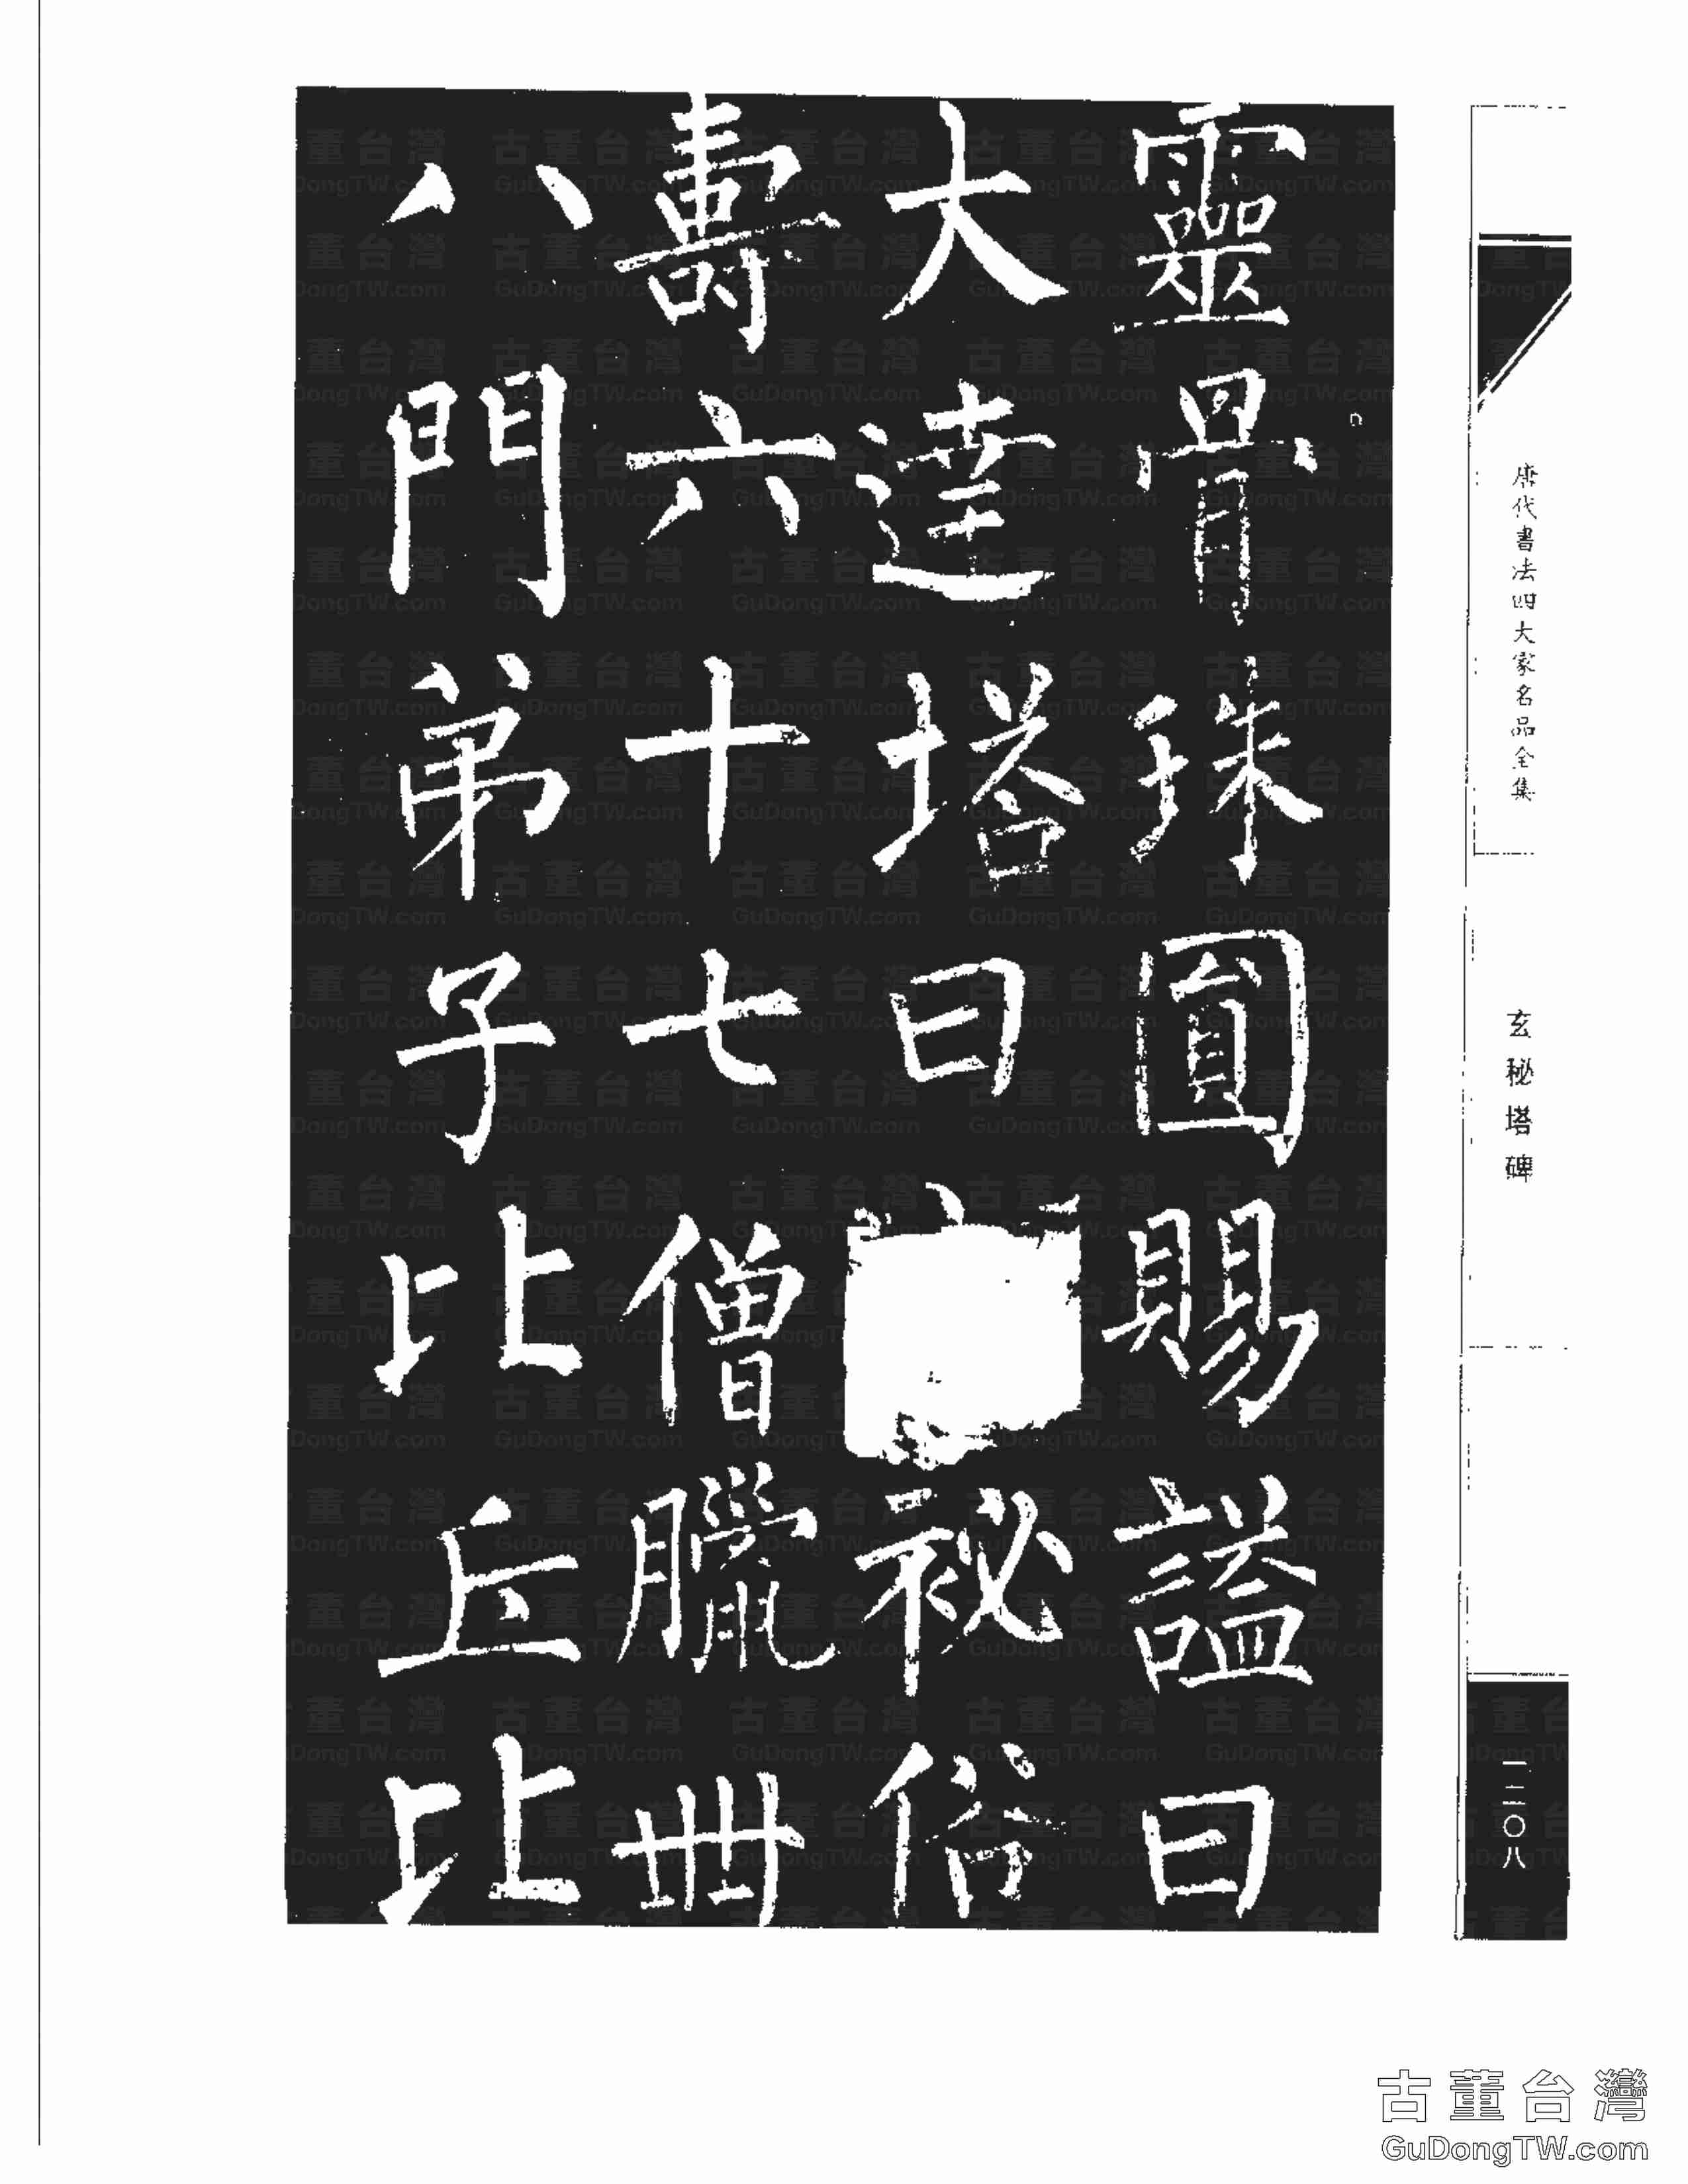 靈骨珠圓賜謚曰
大達塔曰秘俗
壽六十七僧臘卌
八門弟子比丘比
唐代書法四大家名品全集
玄秘塔碑
一二〇八
古董台灣
GuDongTW.com